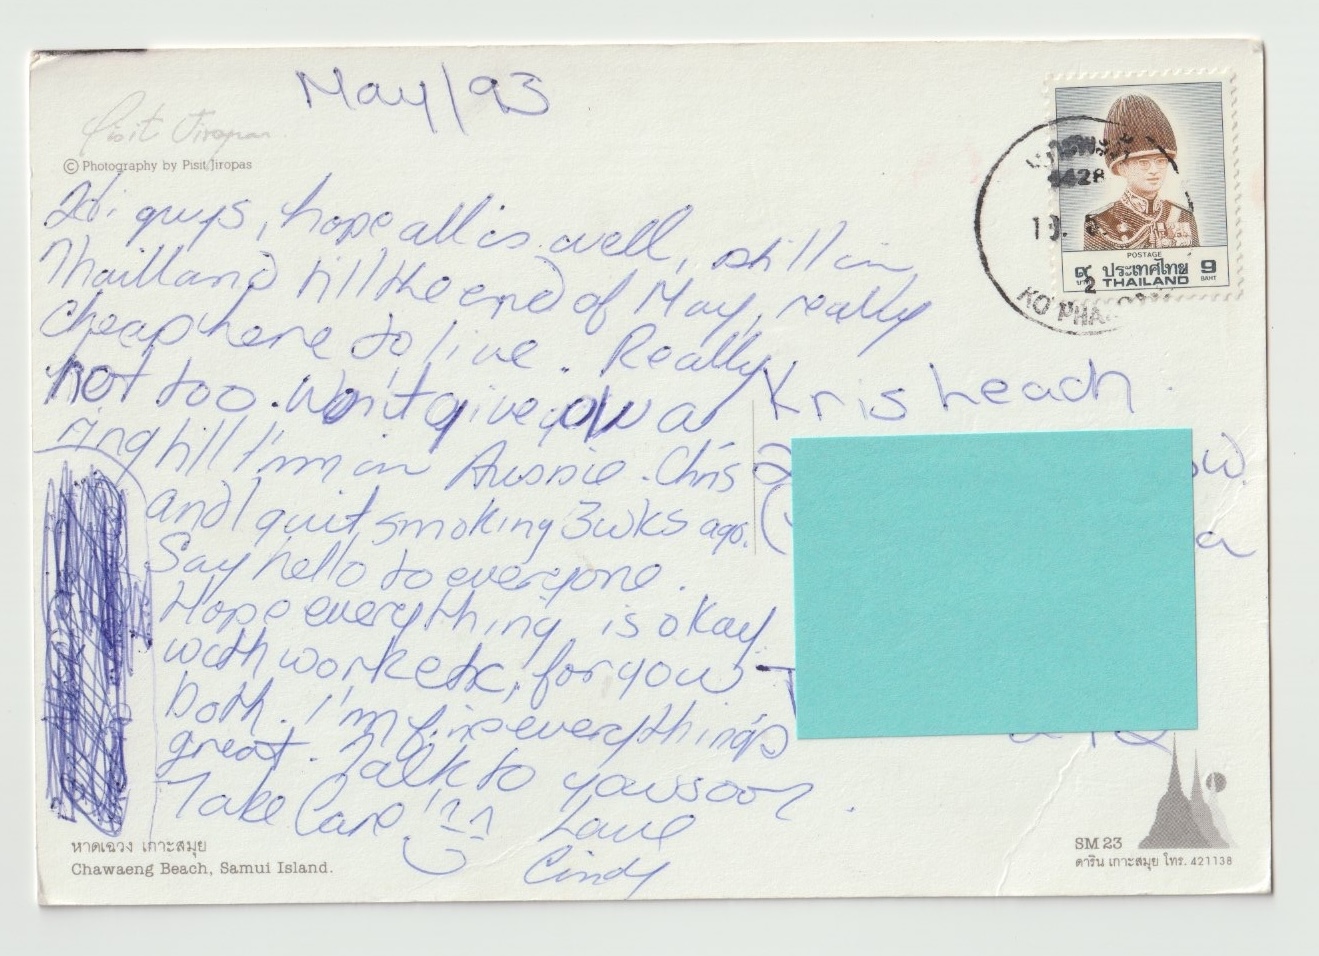 May/93
Pisit Jiropas
© Photography by Pisit Jiropas
Hi guys, hope all is well, still in
Thailland till the end of May, really
cheap here to live. Really
hot too. Won't give you a
ring till I'm in Aussie. Chris
and I quit smoking 3wks ago.
Say hello to everyone.
Hope everything is okay
with work etc, for you
both. I'm fine everythings
great. Talk to you soon.
Take Care!
Love
Cindy
Kris Leach.
หาดเฉวง เกาะสมุย
Chawaeng Beach, Samui Island.
4428
KO PHA
POSTAGE
๙ ประเทศไทย 9
บาท THAILAND BAHT
SM 23
ดาริน เกาะสมุย โทร. 421138